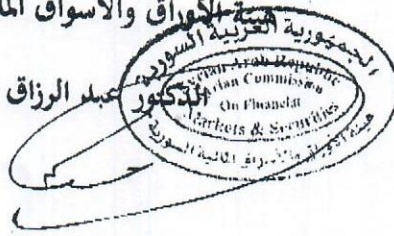 هيئة الأوراق والأسواق
الدكتور عبد الرزاق
الجمهورية العربية السورية
Syrian Arab Republic
Syrian Commission
On Financial
Markets & Securities
هيئة الأوراق والأسواق المالية السورية